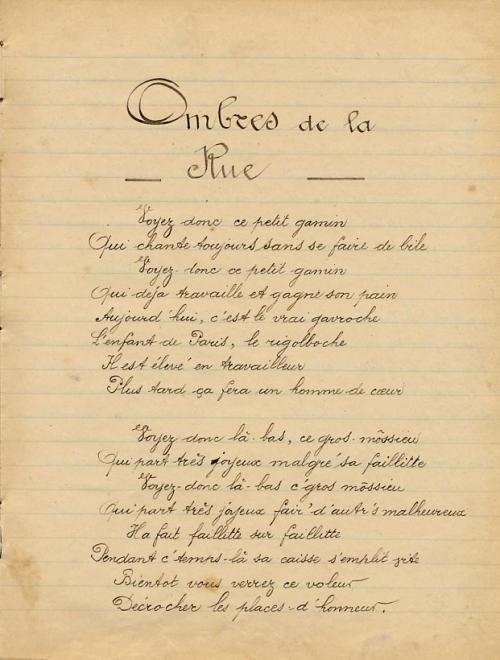 Ombres de la
Rue
Voyez donc ce petit gamin
Qui chante toujours sans se faire de bile
Voyez-donc ce petit gamin
Qui déja travaille et gagne son pain
Aujourd'hui, c'est le vrai gavroche
L'enfant de Paris, le rigolboche
Il est élevé en travailleur
Plus tard ça fera un homme de cœur
Voyez donc là-bas, ce gros môssieu
Qui part très joyeux malgré sa faillitte
Voyez-donc là-bas c'gros môssieu
Qui part très joyeux fair' d'autr's malheureux
Il a fait faillitte sur faillitte
Pendant c'temps-là sa caisse s'emplit vite
Bientot vous verrez ce voleur
Décrocher les places-d'honneur.